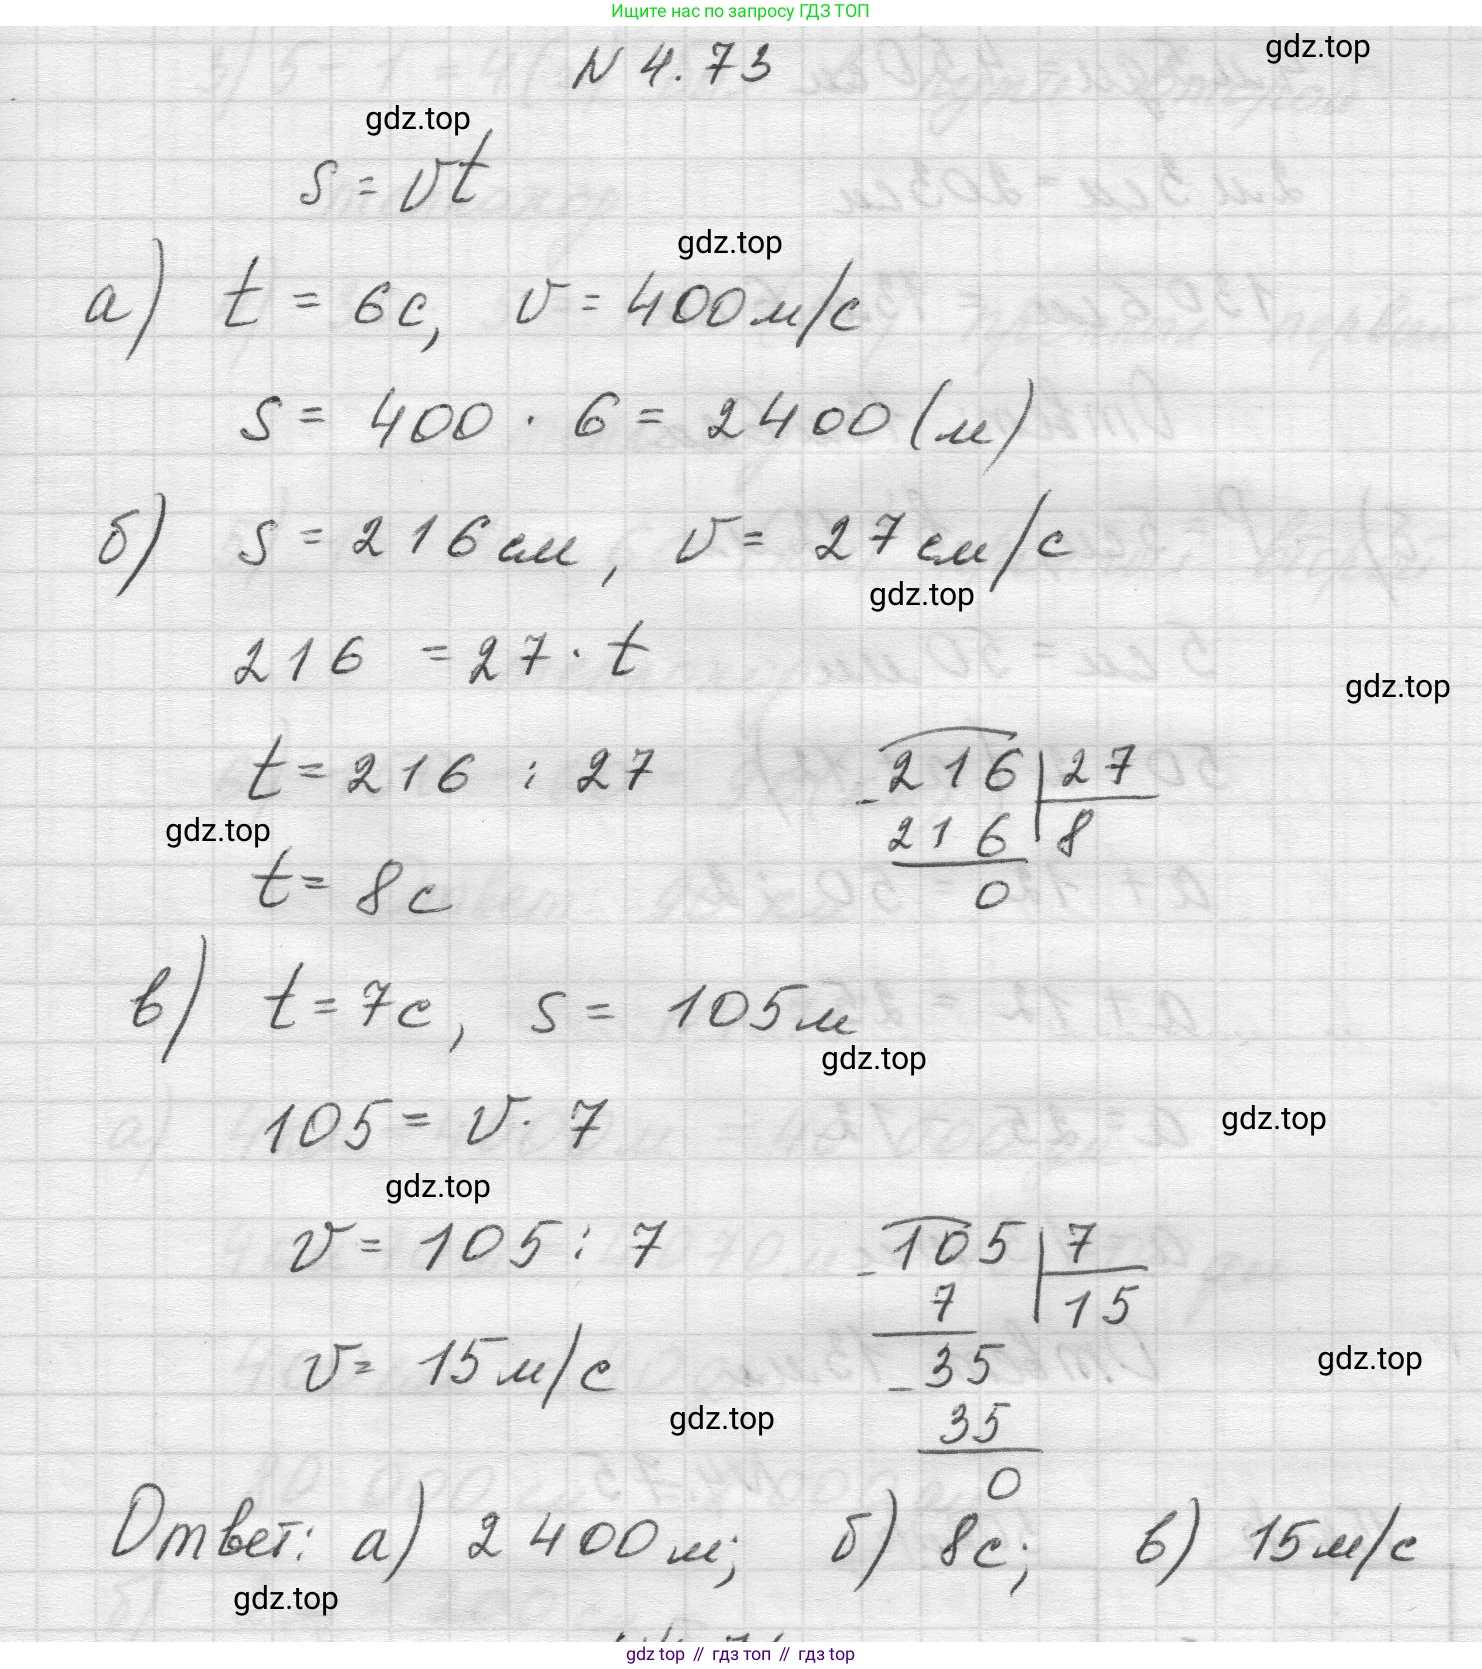 Ищите нас по запросу ГДЗ ТОП
N 4.73
gdz.top
gdz.top
s = vt
gdz.top
а) t = 6с, v = 400м/с
s = 400 · 6 = 2400 (м)
б) s = 216 см, v = 27 см/с
gdz.top
216 = 27 · t
gdz.top
t = 216 : 27
-216 | 27
216 8
0
gdz.top
t = 8с
в) t = 7с, s = 105м
gdz.top
105 = v · 7
gdz.top
gdz.top
v = 105 : 7
-105 | 7
7 15
-35
35
0
v = 15м/с
gdz.top
gdz.top
Ответ: а) 2400м; б) 8с; в) 15м/с
gdz.top
gdz top // гдз топ // гдз top